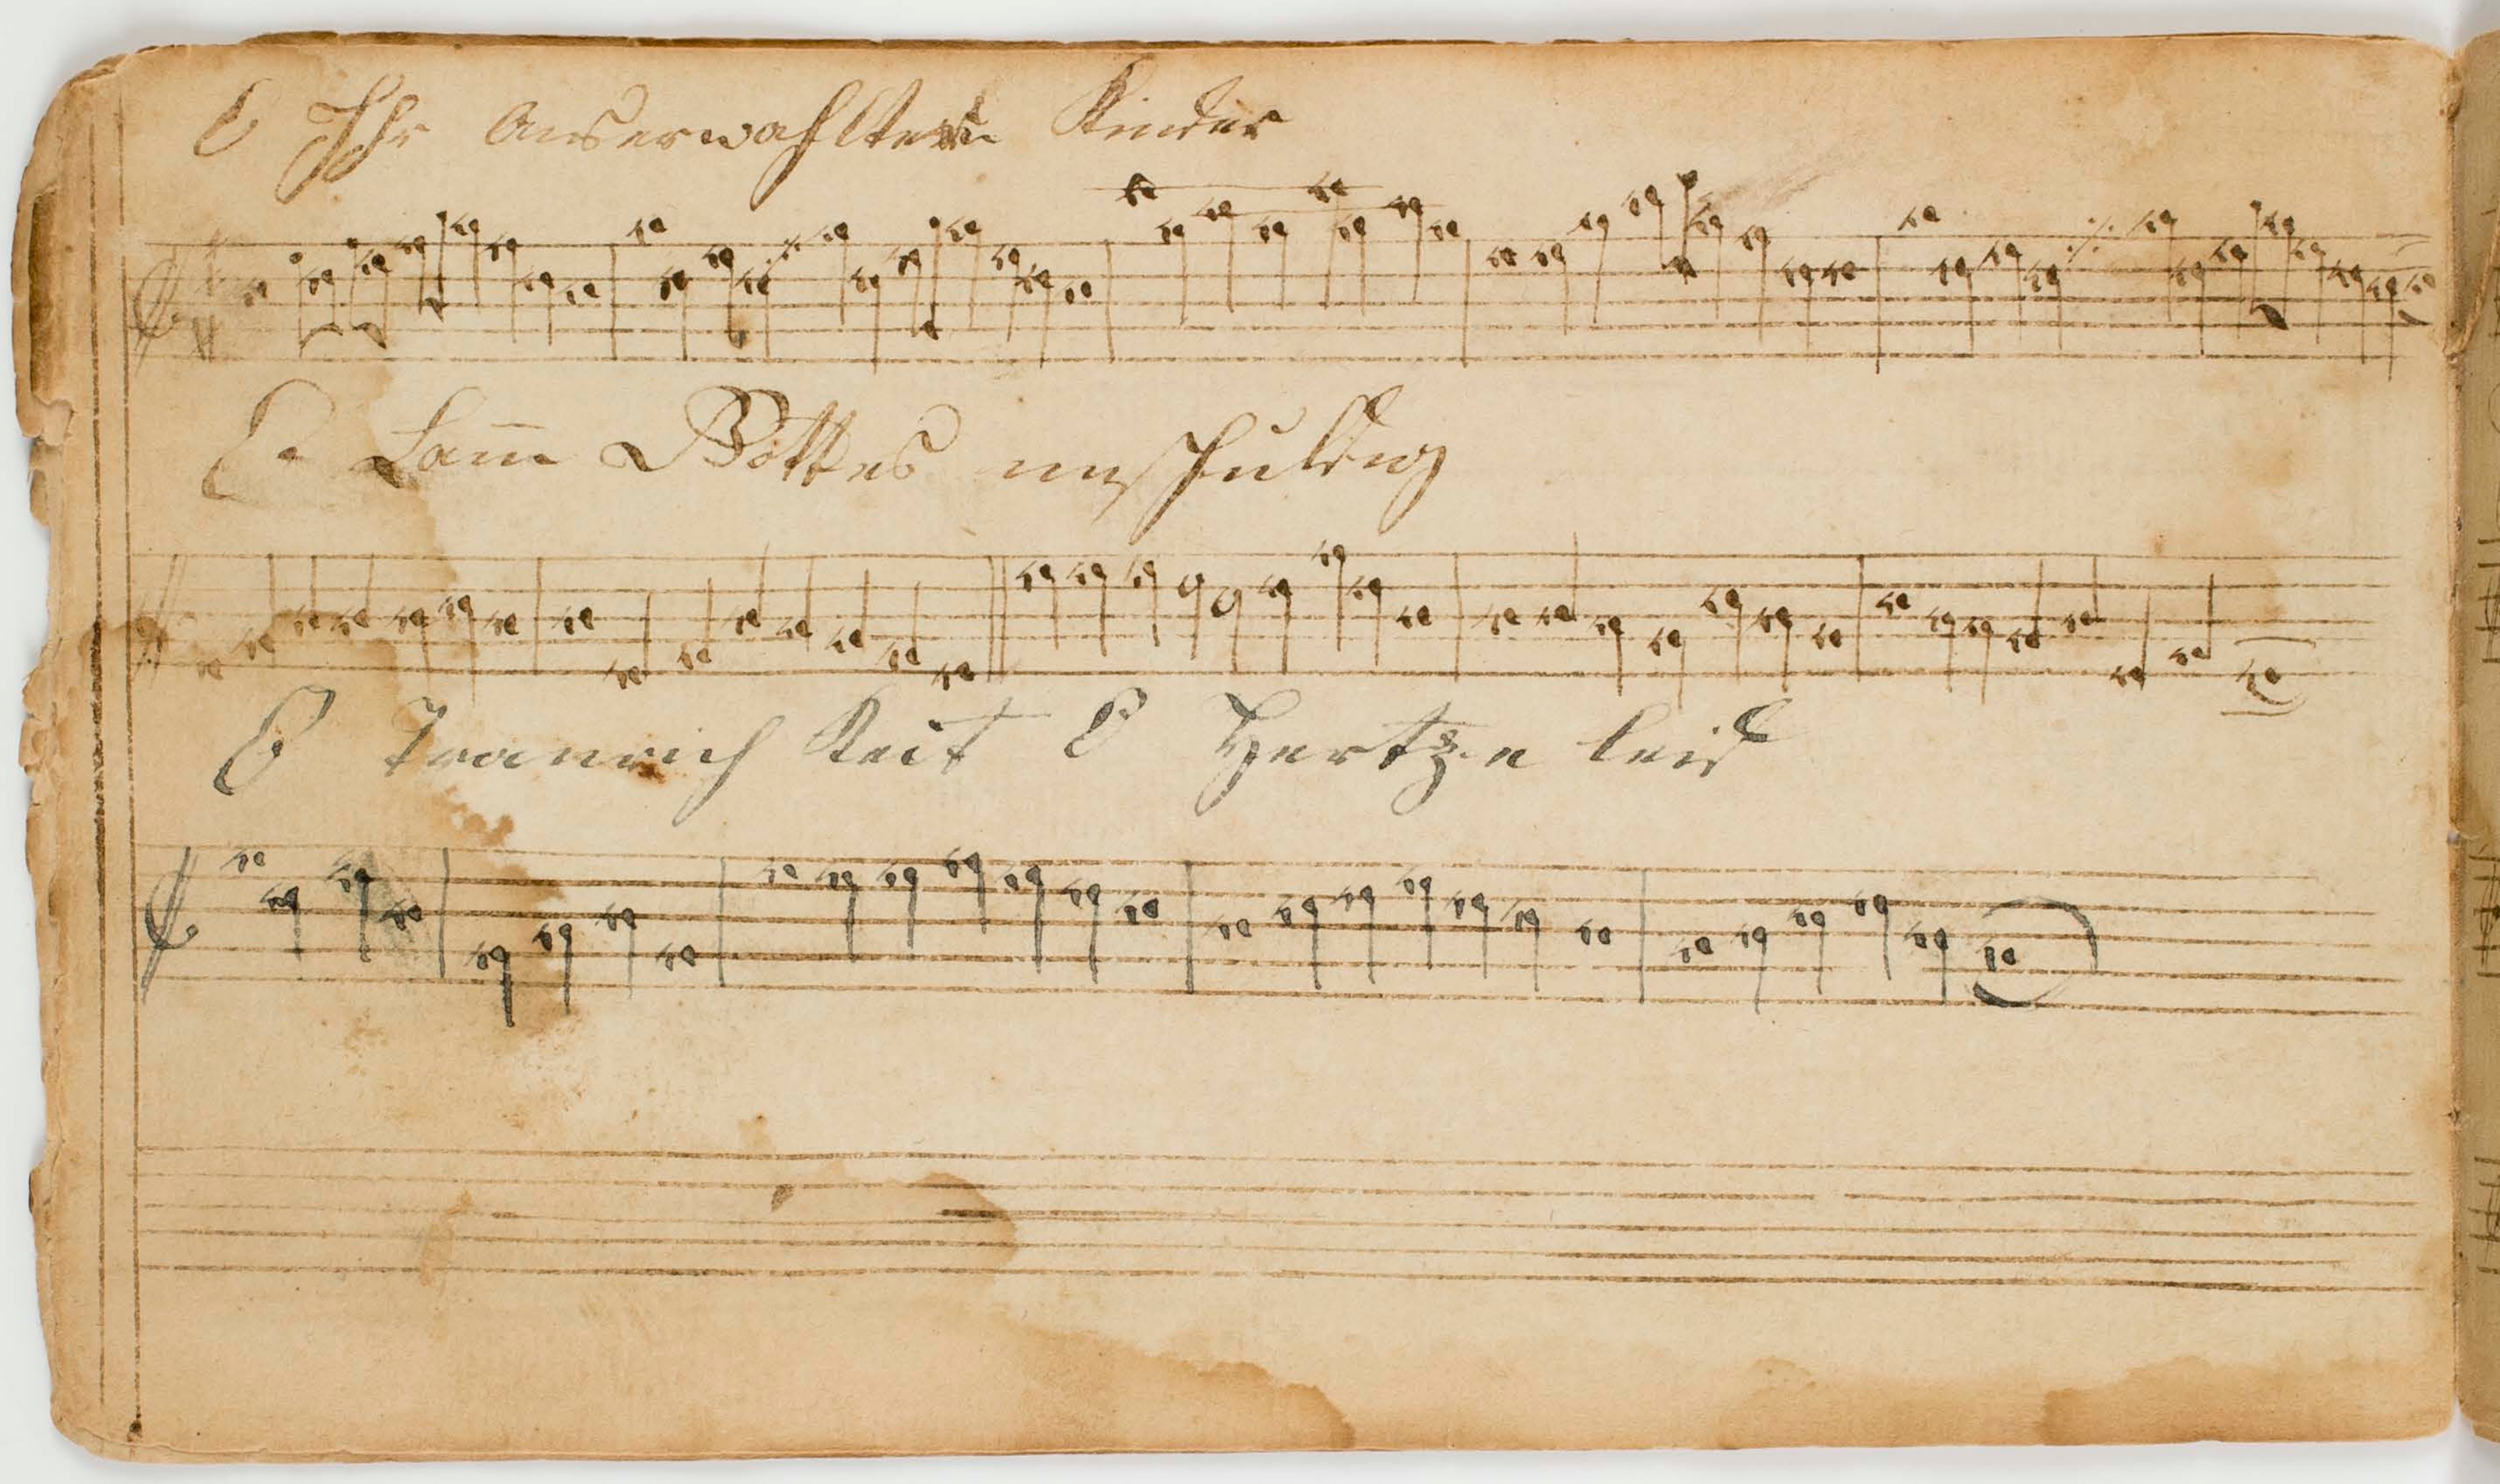 O Ihr Auserwahlten Kinder
O Lam̄ Gottes unschuldig
O Traurich Keit O Hertze leid